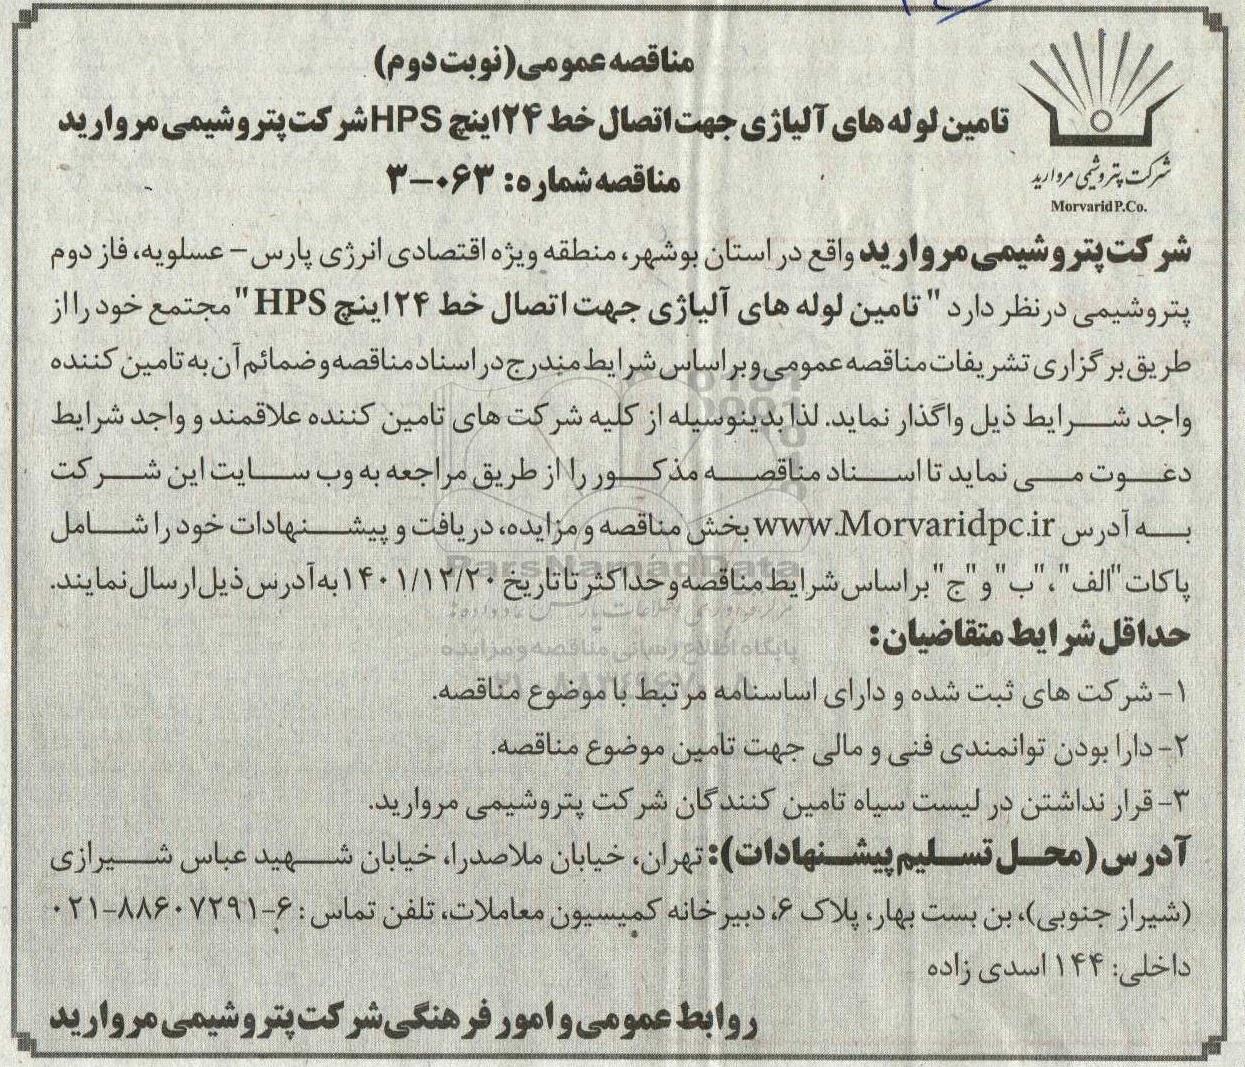 شرکت پتروشیمی مروارید
MorvaridP.Co.
مناقصه عمومی(نوبت دوم)
تامین لوله های آلیاژی جهت اتصال خط ۲۴اینچ HPSشرکت پتروشیمی مروارید
مناقصه شماره: ۰۶۳-۳
شرکت پتروشیمی مروارید واقع در استان بوشهر، منطقه ویژه اقتصادی انرژی پارس – عسلویه، فاز دوم
پتروشیمی درنظر دارد " تامین لوله های آلیاژی جهت اتصال خط ۲۴اینچ HPS " مجتمع خود را از
طریق برگزاری تشریفات مناقصه عمومی و براساس شرایط مندرج در اسناد مناقصه و ضمائم آن به تامین کننده
واجد شرایط ذیل واگذار نماید. لذا بدینوسیله از کلیه شرکت های تامین کننده علاقمند و واجد شرایط
دعوت می نماید تا اسناد مناقصه مذکور را از طریق مراجعه به وب سایت این شرکت
به آدرس www.Morvaridpc.ir بخش مناقصه و مزایده، دریافت و پیشنهادات خود را شامل
پاکات "الف"، "ب" و "ج" براساس شرایط مناقصه و حداکثر تا تاریخ ۱۴۰۱/۱۲/۲۰ به آدرس ذیل ارسال نمایند.
حداقل شرایط متقاضیان:
۱- شرکت های ثبت شده و دارای اساسنامه مرتبط با موضوع مناقصه.
۲- دارا بودن توانمندی فنی و مالی جهت تامین موضوع مناقصه.
۳- قرار نداشتن در لیست سیاه تامین کنندگان شرکت پتروشیمی مروارید.
آدرس (محل تسلیم پیشنهادات): تهران، خیابان ملاصدرا، خیابان شهید عباس شیرازی
(شیراز جنوبی)، بن بست بهار، پلاک ۶، دبیرخانه کمیسیون معاملات، تلفن تماس : ۶-۸۸۶۰۷۲۹۱-۰۲۱
داخلی: ۱۴۴ اسدی زاده
روابط عمومی و امور فرهنگی شرکت پتروشیمی مروارید
ParsNamadData
پایگاه اطلاع رسانی مناقصه و مزایده